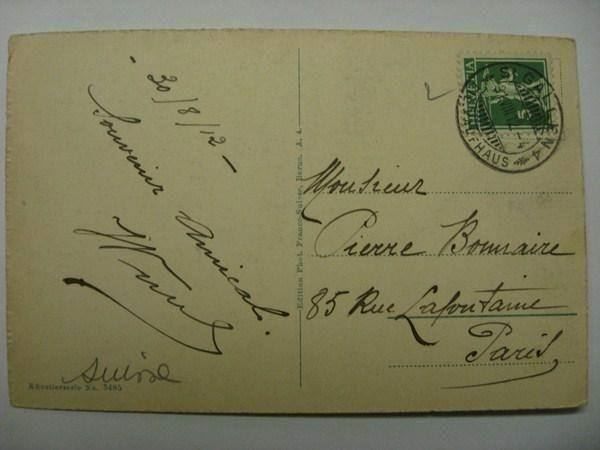 20/8/12 -
Souvenir Amical.
Suisse
Künstlerserie No. 5485
Edition Phot. Franco-Suisse, Berne. A. 4.
HELVETIA
5
ST. GALLEN 4
KAUFHAUS
Monsieur
Pierre Bonnaire
85 Rue Lafontaine
Paris